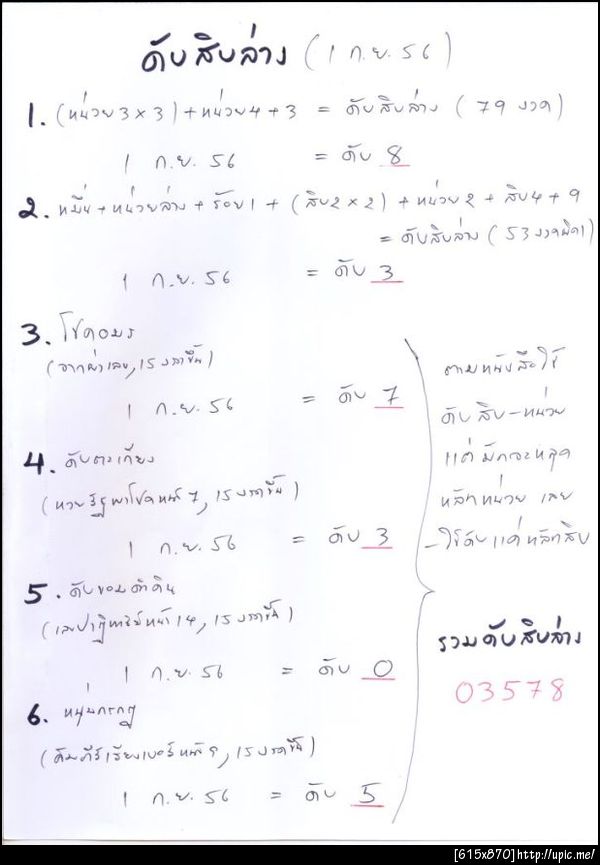 ดับสิบล่าง (1 ก.ย. 56)
1. (หน่วย3×3)+หน่วย4+3 = ดับสิบล่าง (79 งวด)
1 ก.ย. 56 = ดับ 8
2. หมื่น+หน่วยล่าง+ร้อย1+(สิบ2×2)+หน่วย2+สิบ4+9
= ดับสิบล่าง (53 งวดผิด1)
1 ก.ย. 56 = ดับ 3
3. โชคอมร
(จาก เลข, 15 งวดขึ้น)
1 ก.ย. 56 = ดับ 7
4. ดับตะเกียง
(หวยรัฐพาโชคหน้า 7, 15 งวดขึ้น)
1 ก.ย. 56 = ดับ 3
5. ดับขอมดำดิน
(เลขปาฏิหาริย์หน้า 14, 15 งวดขึ้น)
1 ก.ย. 56 = ดับ 0
6. หนุ่มกรกฎ
(คัมภีร์เรียงเบอร์หน้า 9, 15 งวดขึ้น)
1 ก.ย. 56 = ดับ 5
ตามหนังสือใช้
ดับสิบ-หน่วย
แต่มักจะหลุด
หลักหน่วย เลย
-ใช้ดับแค่หลักสิบ
รวมดับสิบล่าง
03578
[615x870]http://upic.me/